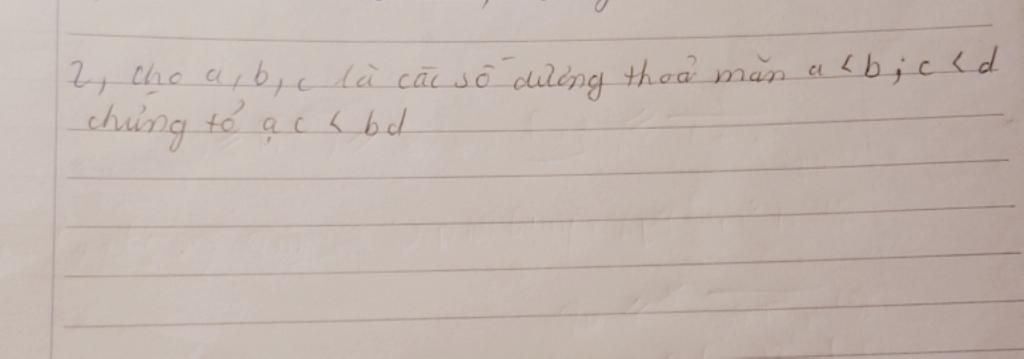 2, cho a, b, c là các số dương thoả mãn a < b; c < d
chứng tỏ ac < bd